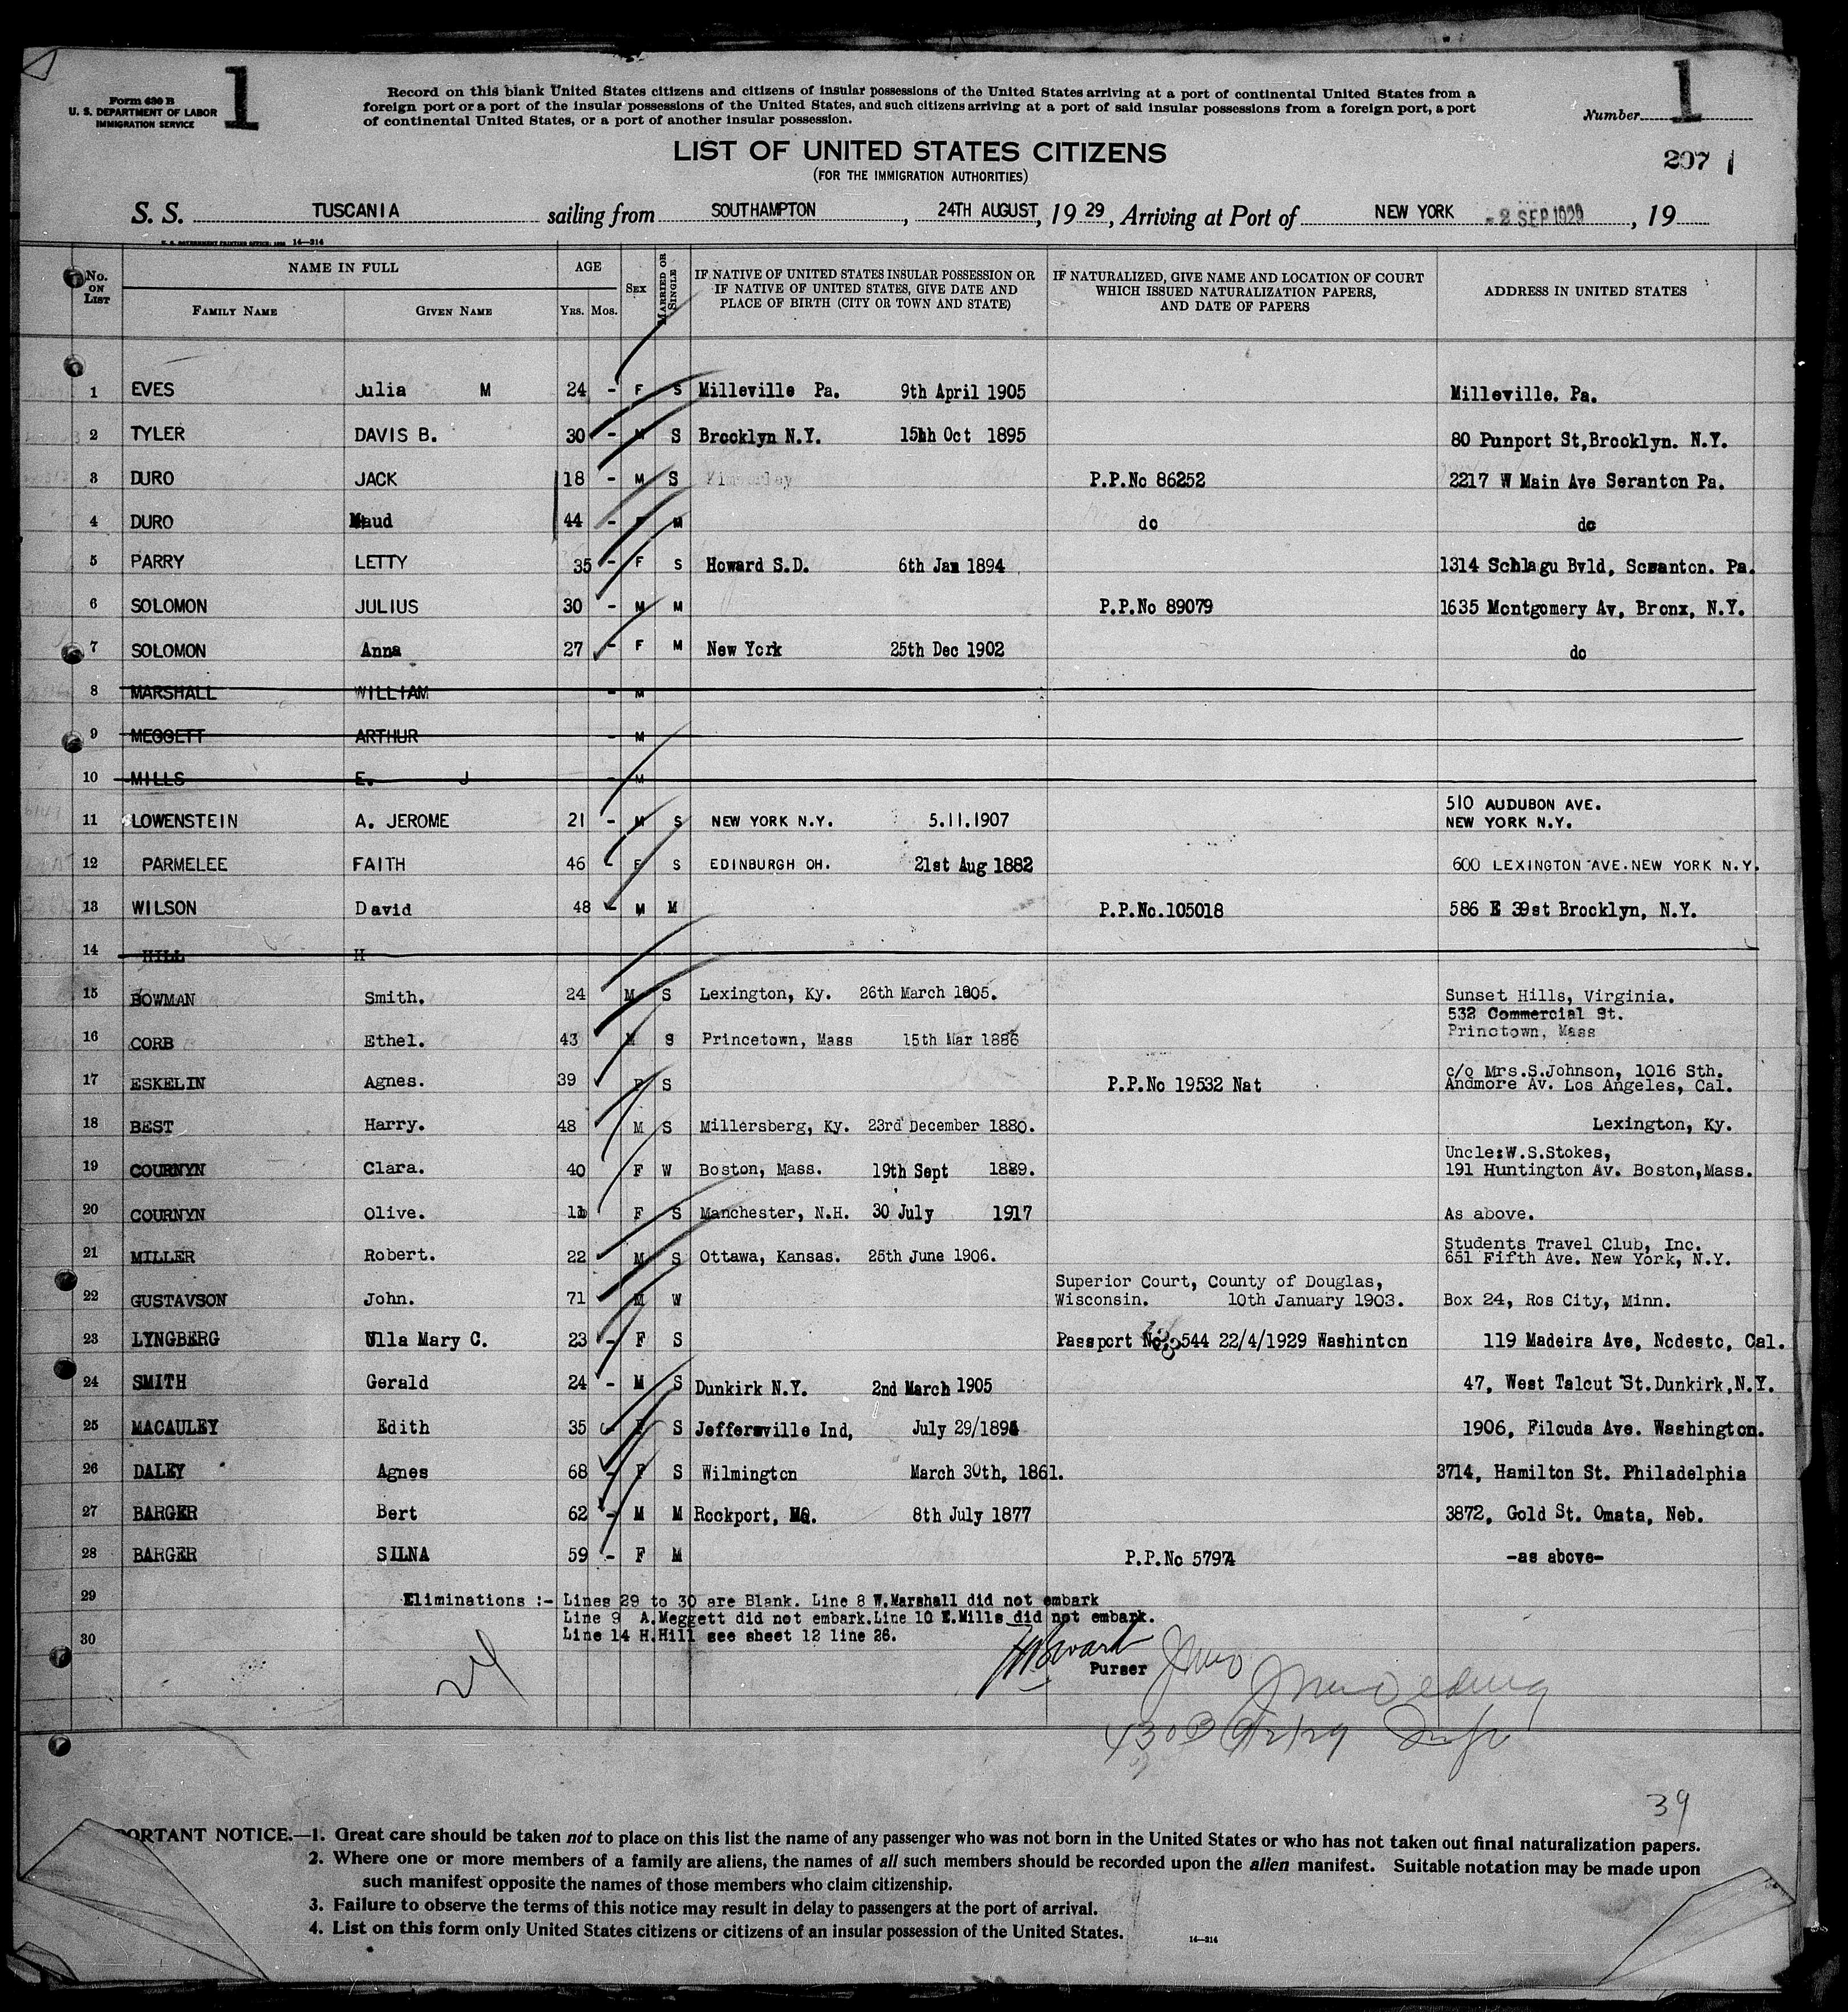 1
Form 630 B
U. S. DEPARTMENT OF LABOR
IMMIGRATION SERVICE
Record on this blank United States citizens and citizens of insular possessions of the United States arriving at a port of continental United States from a
foreign port or a port of the insular possessions of the United States, and such citizens arriving at a port of said insular possessions from a foreign port, a port
of continental United States, or a port of another insular possession.
Number 1
LIST OF UNITED STATES CITIZENS
(FOR THE IMMIGRATION AUTHORITIES)
207 1
S. S. TUSCANIA sailing from SOUTHAMPTON, 24TH AUGUST, 1929, Arriving at Port of NEW YORK -2 SEP 1929, 19
U. S. GOVERNMENT PRINTING OFFICE: 14—214
No. ON LIST
NAME IN FULL
FAMILY NAME GIVEN NAME
AGE
YRS. MOS.
SEX
MARRIED OR SINGLE
IF NATIVE OF UNITED STATES INSULAR POSSESSION OR
IF NATIVE OF UNITED STATES, GIVE DATE AND
PLACE OF BIRTH (CITY OR TOWN AND STATE)
IF NATURALIZED, GIVE NAME AND LOCATION OF COURT
WHICH ISSUED NATURALIZATION PAPERS,
AND DATE OF PAPERS
ADDRESS IN UNITED STATES
1 EVES Julia M 24 - F S Milleville Pa. 9th April 1905 Milleville. Pa.
2 TYLER DAVIS B. 30 - M S Brooklyn N.Y. 15hh Oct 1895 80 Punport St, Brooklyn. N.Y.
3 DURO JACK 18 - M S P.P.No 86252 2217 W Main Ave Seranton Pa.
4 DURO Maud 44 - F M do do
5 PARRY LETTY 35 - F S Howard S.D. 6th Jan 1894 1314 Schlagu Bvld, Scranton. Pa.
6 SOLOMON JULIUS 30 - M M P.P.No 89079 1635 Montgomery Av, Bronx, N.Y.
7 SOLOMON Anna 27 - F M New York 25th Dec 1902 do
8 MARSHALL WILLIAM - M
9 MEGGETT ARTHUR - M
10 MILLS E. J - M
11 LOWENSTEIN A. JEROME 21 - M S NEW YORK N.Y. 5.11.1907 510 AUDUBON AVE.
NEW YORK N.Y.
12 PARMELEE FAITH 46 - F S EDINBURGH OH. 21st Aug 1882 600 LEXINGTON AVE. NEW YORK N.Y.
13 WILSON David 48 - M M P.P.No.105018 586 E 39st Brooklyn, N.Y.
14 HILL H
15 BOWMAN Smith. 24 M S Lexington, Ky. 26th March 1905. Sunset Hills, Virginia.
16 CORB Ethel. 43 M S Princetown, Mass 15th Mar 1886 532 Commercial St.
Princtown, Mass
17 ESKELIN Agnes. 39 F S P.P.No 19532 Nat c/o Mrs.S.Johnson, 1016 Sth.
Andmore Av. Los Angeles, Cal.
18 BEST Harry. 48 M S Millersberg, Ky. 23rd December 1880. Lexington, Ky.
19 COURNYN Clara. 40 F W Boston, Mass. 19th Sept 1889. Uncle:W.S.Stokes,
191 Huntington Av. Boston, Mass.
20 COURNYN Olive. 11 F S Manchester, N.H. 30 July 1917 As above.
21 MILLER Robert. 22 M S Ottawa, Kansas. 25th June 1906. Students Travel Club, Inc.
651 Fifth Ave. New York, N.Y.
22 GUSTAVSON John. 71 M W Superior Court, County of Douglas,
Wisconsin. 10th January 1903. Box 24, Ros City, Minn.
23 LYNGBERG Ulla Mary C. 23 - F S Passport No. 544 22/4/1929 Washinton 119 Madeira Ave, Nodesto, Cal.
24 SMITH Gerald 24 - M S Dunkirk N.Y. 2nd March 1905 47, West Talcut St. Dunkirk, N.Y.
25 MACAULEY Edith 35 - F S Jeffersville Ind, July 29/1894 1906, Filcuda Ave. Washington.
26 DALEY Agnes 68 - F S Wilmington March 30th, 1861. 3714, Hamilton St. Philadelphia
27 BARGER Bert 62 - M M Rockport, MO. 8th July 1877 3872, Gold St. Omata, Neb.
28 BARGER SILNA 59 - F M P.P.No 5797 -as above-
29 Eliminations :- Lines 29 to 30 are Blank. Line 8 W.Marshall did not embark
Line 9 A.Meggett did not embark.Line 10 E.Mills did not embark.
30 Line 14 H.Hill see sheet 12 line 26.
Purser
430B 9/2/29
39
IMPORTANT NOTICE.—1. Great care should be taken not to place on this list the name of any passenger who was not born in the United States or who has not taken out final naturalization papers.
2. Where one or more members of a family are aliens, the names of all such members should be recorded upon the alien manifest. Suitable notation may be made upon
such manifest opposite the names of those members who claim citizenship.
3. Failure to observe the terms of this notice may result in delay to passengers at the port of arrival.
4. List on this form only United States citizens or citizens of an insular possession of the United States.
14—214